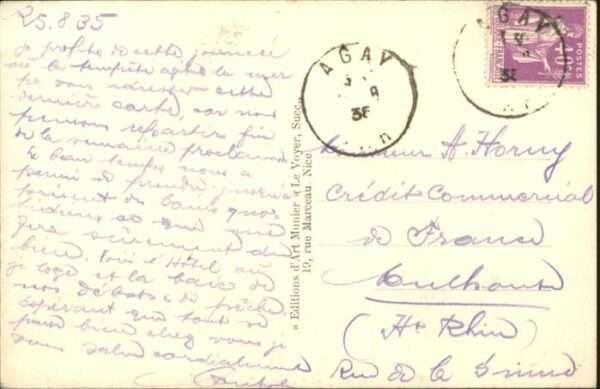 25.8.35
je profite de cette journée
où la tempête agite la mer
pr vous adresser cette
dernière carte, car nous
pensons repartir fin
de la semaine prochaine
Le beau temps nous a
permis de prendre, jusqu'à
présent des bains quo-
tidiens ce qui nous
fera sûrement du
bien. Voici l'Hôtel où
je loge et la baie de
nos débats de pêche
espérant que tout se
passe bien chez vous je
vous salue cordialement
« Editions d'Art Munier » Le Voyer, Succ.
19, rue Marceau, Nice
AGAY
35
AGAY
35
Monsieur A. Horny
Crédit Commercial
de France
Mulhouse
(Ht Rhin)
Rue de la Sinne